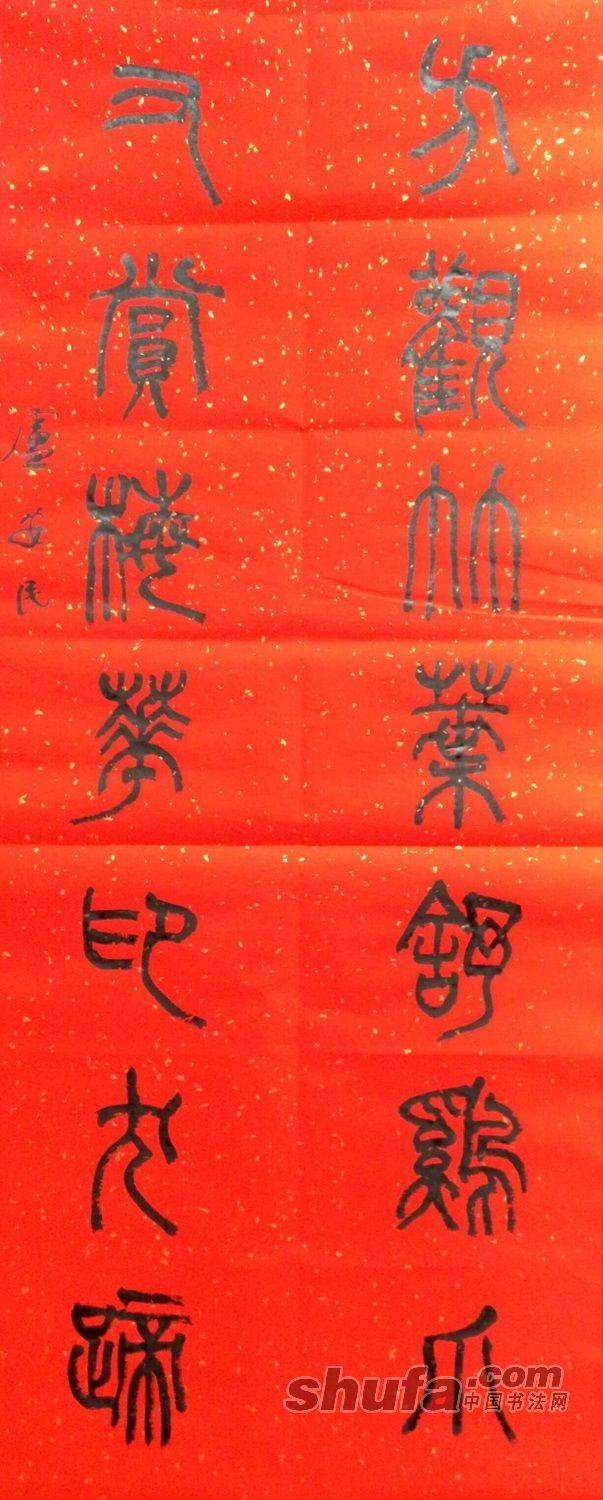 方觀竹葉舒鷄爪
又賞梅華印犬蹏
盧安民
shufa.com
中国书法网